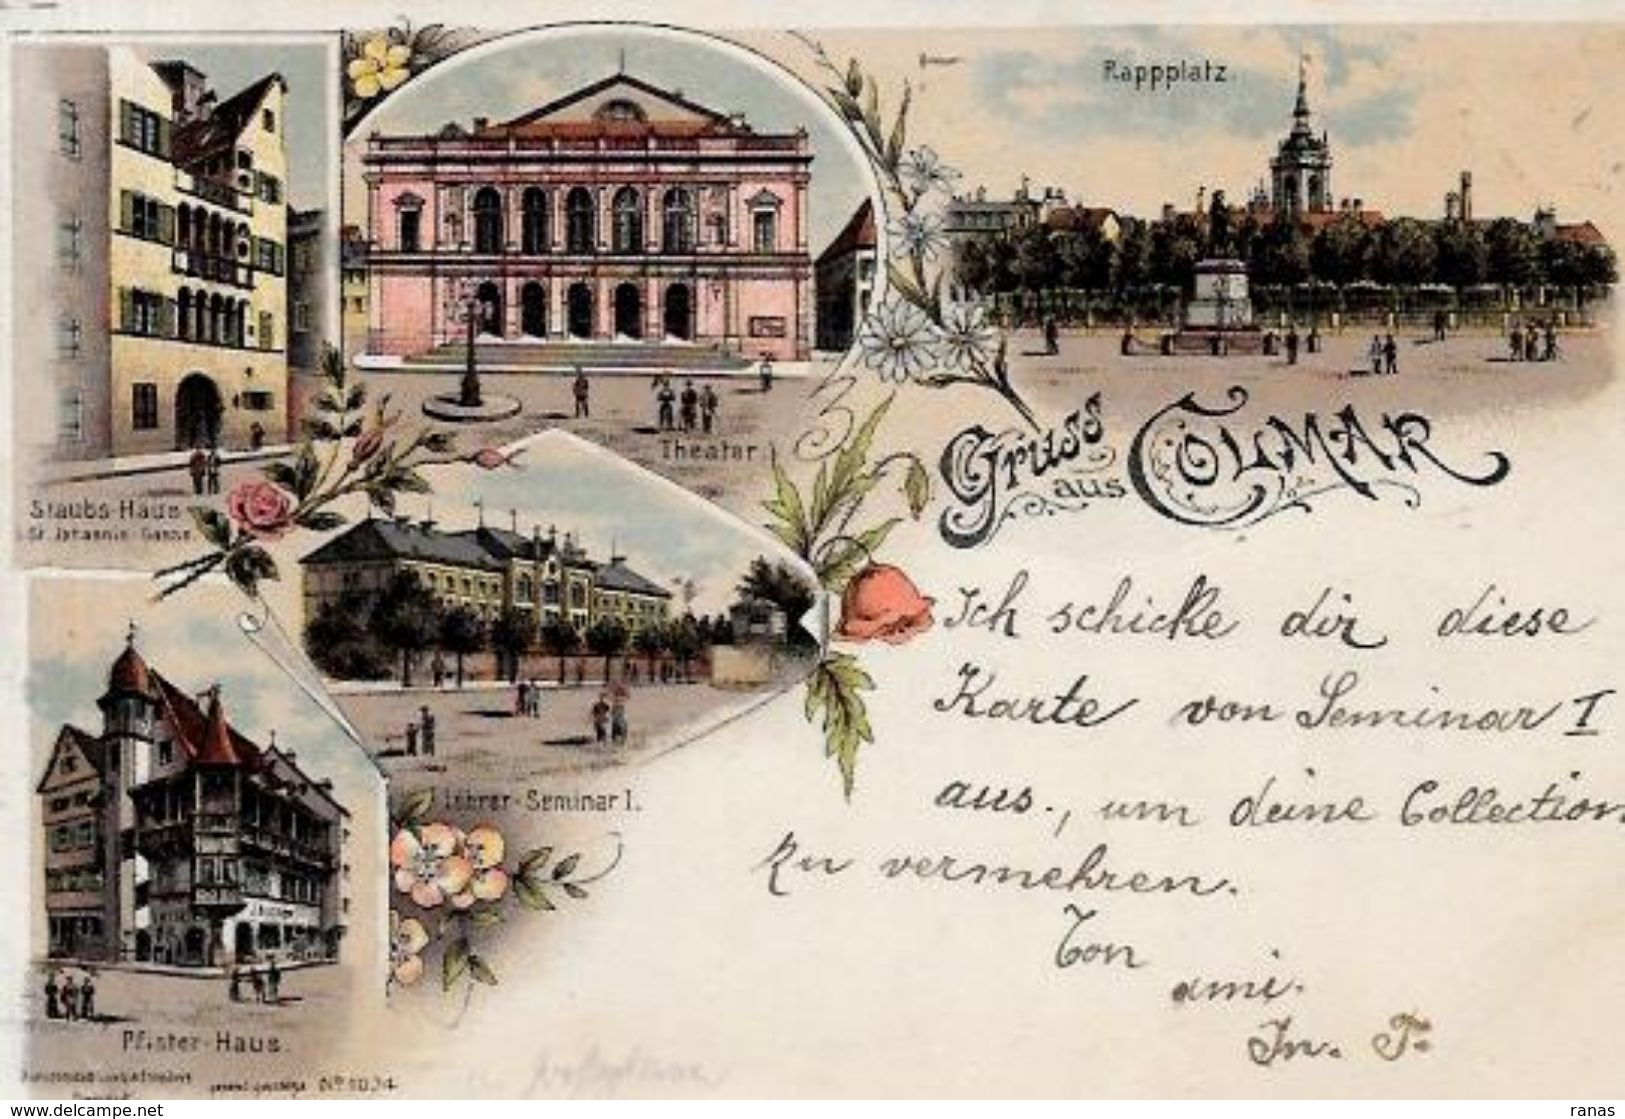 Rappplatz.
Theater.
Gruss
aus COLMAR
Staubs-Haus
St. Johannis-Gasse.
Lehrer-Seminar I.
Pfister-Haus.
No 1034
Ich schicke dir diese
Karte von Seminar I
aus., um deine Collection
zu vermehren.
Ton
ami.
Jn. F.
www.delcampe.net
ranas